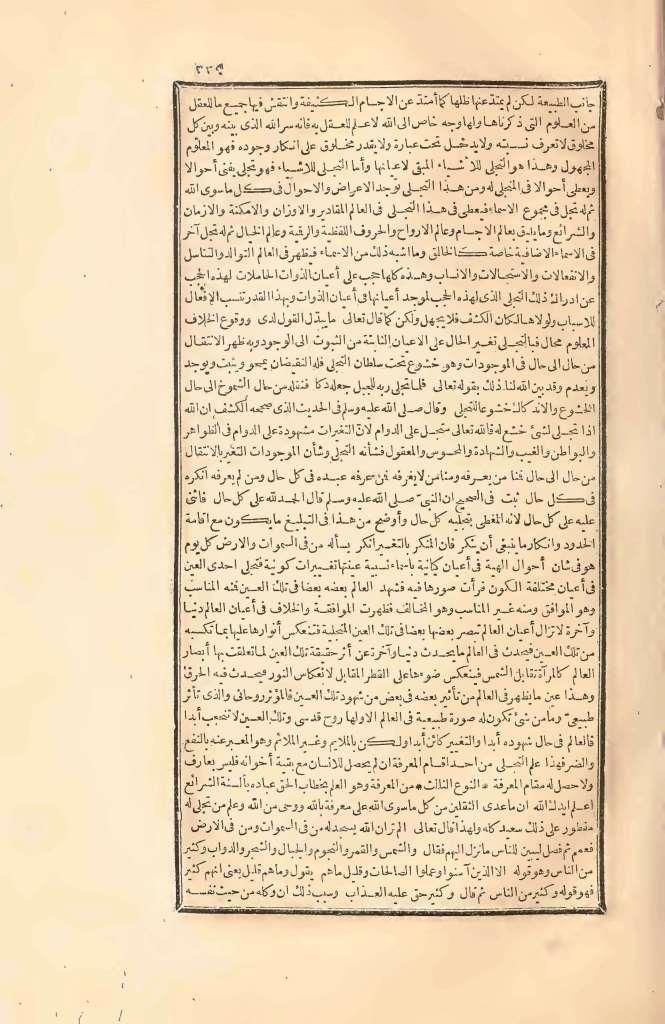 ٣٣٤
جانب الطبيعة لكن لم يمتد عنها ظلها كما امتد عن الاجسام الكثيفة وانتقش فيها جميع ما للعقل
من العلوم التى ذكرناها ولها وجه خاص الى الله لا علم للعقل به فانه سر الله الذى بينه وبين كل
مخلوق لا تعرف نسبته ولا يدخل تحت عبارة ولا يقدر مخلوق على انكار وجوده فهو المعلوم
المجهول وهذا هو التجلى للأشياء المبقى لاعيانها وأما التجلى للاشياء فهو تجلى يفنى أحوالا
ويعطى أحوالا فى المتجلى له ومن هذا التجلى توجد الاعراض والاحوال فى كل ماسوى الله
ثم له تجل فى مجموع الاسماء فيعطى فى هذا التجلى فى العالم المقادير والاوزان والامكنة والازمان
والشرائع وما يليق بعالم الاجسام وعالم الارواح والحروف اللفظية والرقية وعالم الخيال ثم له تجل آخر
فى الاسماء الاضافية خاصة كالخالق وما اشبه ذلك من الاسماء فيظهر فى العالم التوالد والتناسل
والانفعالات والاستحالات والانساب وهذه كلها حجب على أعيان الذوات الحاملات لهذه الحجب
عن ادراك ذلك التجلى الذى لهذه الحجب لموجد أعيانها فى أعيان الذوات وبهذا القدر تنسب الافعال
للاسباب ولولاها لكان الكشف فلا يجهل ولكن كما قال تعالى ما يبدل القول لدى ووقوع الخلاف
المعلوم محال فبالتجلى تغير الحال على الاعيان الثابتة من الثبوت الى الوجود وبه ظهر الانتقال
من حال الى حال فى الموجودات وهو خشوع تحت سلطان التجلى فله النقيضان يمحو ويثبت ويوجد
ويعدم وقد بين الله لنا ذلك بقوله تعالى فلما تجلى ربه للجبل جعله دكا فنقله من حال الشموخ الى حال
الخشوع والاندكاك خشوعا للتجلى وقال صلى الله عليه وسلم فى الحديث الذى صححه الكشف ان الله
اذا تجلى لشئ خشع له فالله تعالى متجل على الدوام لانّ التغيرات مشهودة على الدوام فى الظواهر
والبواطن والغيب والشهادة والمحسوس والمعقول فشأنه التجلى وشأن الموجودات التغير بالانتقال
من حال الى حال فمنا من يعرفه ومنا من لا يعرفه فمن عرفه عبده فى كل حال ومن لم يعرفه أنكره
فى كل حال ثبت فى الصحيح ان النبىّ صلى الله عليه وسلم قال الحمد لله على كل حال فاثنى
عليه على كل حال لانه المعطى بتجليه كل حال وأوضح من هذا فى التبليغ ما يكون مع اقامة
الحدود وانكار ما ينبغى أن ينكر فان المنكر بالتغيير انكر يسأله من فى السموات والارض كل يوم
هو فى شان أحوال الهية فى أعيان كيانية بأسماء نسبية عينتها تغييرات كونية فتجلى احدى العين
فى أعيان مختلفة الكون فرأت صورها فيه فشهد العالم بعضه بعضا فى تلك العين فمنه المناسب
وهو الموافق ومنه غير المناسب وهو المخالف فظهرت الموافقة والخلاف فى أعيان العالم دنيا
وآخرة لا تزال أعيان العالم تبصر بعضها بعضا فى تلك العين المتجلية فتنعكس أنوارها عليها بما تكسبه
من تلك العين فيحدث فى العالم ما يحدث دنيا وآخرة عن أثر حقيقة تلك العين لما تعلقت بها أبصار
العالم كالمرآة تقابل الشمس فينعكس ضوءها على القطر المقابل لانعكاس النور فيحدث فيه الحرق
وهذا عين ما يظهر فى العالم من تأثير بعضه فى بعض من شهود تلك العين فالمؤثر روحانى والذى تأثر
طبيعىّ وما من شئ تكون له صورة طبيعية فى العالم الا ولها روح قدسى وتلك العين لا تنحجب أبدا
فالعالم فى حال شهوده أبدا والتغيير كائن أبدا ولكن بالملايم وغير الملائم وهو المعبر عنه بالنفع
والضر فهذا علم التجلى من احد اقسام المعرفة ان لم يحصل للانسان مع بقية أخواته فليس بعارف
ولا حصل له مقام المعرفة * النوع الثالث * من المعرفة وهو العلم بخطاب الحق عباده بألسنة الشرائع
اعلم ايدك الله ان ماعدى الثقلين من كل ماسوى الله على معرفة بالله ووحى من الله وعلم من تجلى له
مفطور على ذلك سعيد كله ولهذا قال تعالى الم تر ان الله يسجد له من فى السموات ومن فى الارض
فعمم ثم فصل ليبين للناس ما نزل اليهم فقال والشمس والقمر والنجوم والجبال والشجر والدواب وكثير
من الناس وهو قوله الا الذين آمنوا وعملوا الصالحات وقليل ماهم يقول وماهم قليل يعنى انهم كثير
فهو قوله وكثير من الناس ثم قال وكثير حق عليه العذاب وسبب ذلك ان وكله من حيث نفسه